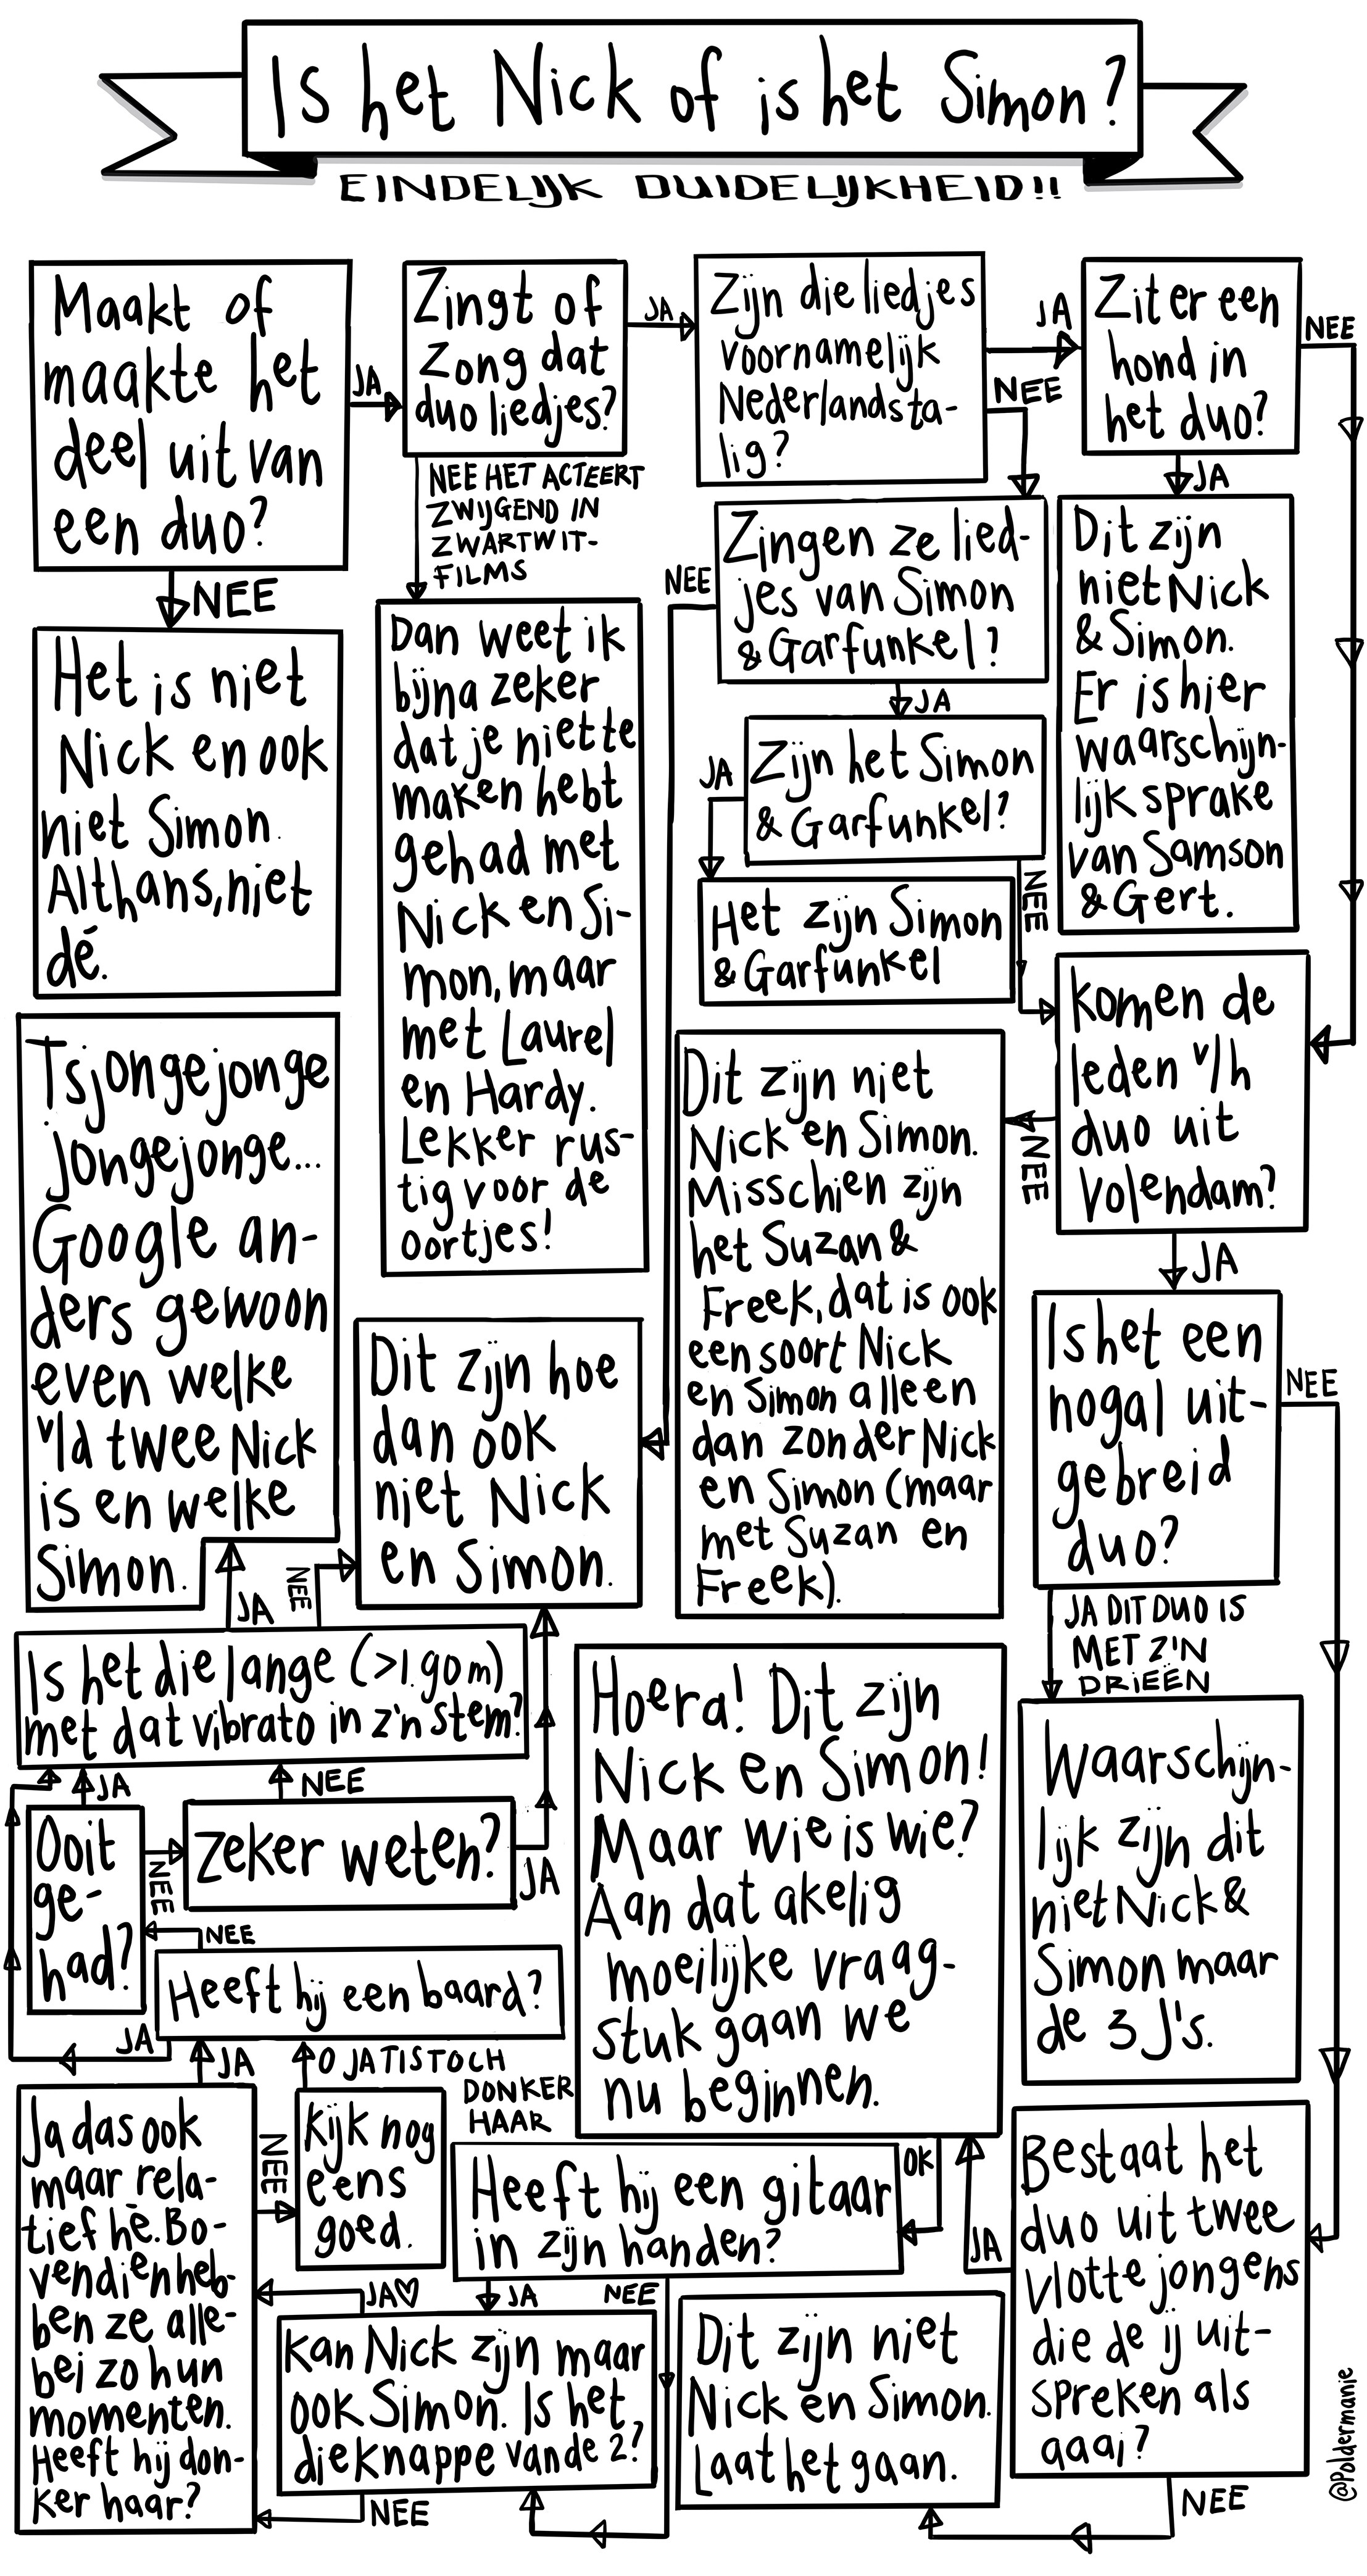 Is het Nick of is het Simon?
EINDELIJK DUIDELIJKHEID!!
Maakt of
maakte het
deel uit van
een duo?
JA
NEE
Zingt of
zong dat
duo liedjes?
JA
NEE HET ACTEERT
ZWIJGEND IN
ZWARTWIT-
FILMS
Zijn die liedjes
voornamelijk
Nederlandsta-
lig?
JA
NEE
Zit er een
hond in
het duo?
NEE
JA
Het is niet
Nick en ook
niet Simon.
Althans, niet
dé.
Dan weet ik
bijna zeker
dat je niet te
maken hebt
gehad met
Nick en Si-
mon, maar
met Laurel
en Hardy.
Lekker rus-
tig voor de
oortjes!
Zingen ze lied-
jes van Simon
& Garfunkel?
NEE
JA
Dit zijn
niet Nick
& Simon.
Er is hier
waarschijn-
lijk sprake
van Samson
& Gert.
Zijn het Simon
& Garfunkel?
JA
NEE
Het zijn Simon
& Garfunkel
Komen de
leden v/h
duo uit
Volendam?
NEE
JA
Tsjongejonge
jongejonge...
Google an-
ders gewoon
even welke
v/d twee Nick
is en welke
Simon.
Dit zijn hoe
dan ook
niet Nick
en Simon.
Dit zijn niet
Nick en Simon.
Misschien zijn
het Suzan &
Freek, dat is ook
een soort Nick
en Simon alleen
dan zonder Nick
en Simon (maar
met Suzan en
Freek).
Is het een
nogal uit-
gebreid
duo?
NEE
JA DIT DUO IS
MET Z'N
DRIEËN
JA
NEE
Is het die lange (>1.90m)
met dat vibrato in z'n stem?
JA
NEE
Ooit
ge-
had?
NEE
Zeker weten?
JA
NEE
Heeft hij een baard?
JA
JA
O JA TIS TOCH
DONKER
HAAR
Hoera! Dit zijn
Nick en Simon!
Maar wie is wie?
Aan dat akelig
moeilijke vraag-
stuk gaan we
nu beginnen.
OK
JA
Waarschijn-
lijk zijn dit
niet Nick &
Simon maar
de 3 J's.
Ja das ook
maar rela-
tief hè. Bo-
vendien heb-
ben ze alle-
bei zo hun
momenten.
Heeft hij don-
ker haar?
NEE
Kijk nog
eens
goed.
Heeft hij een gitaar
in zijn handen?
JA
NEE
JA♡
Kan Nick zijn maar
ook Simon. Is het
die knappe van de 2?
NEE
Dit zijn niet
Nick en Simon.
Laat het gaan.
Bestaat het
duo uit twee
vlotte jongens
die de ij uit-
spreken als
aaai?
NEE
@Poldermanie